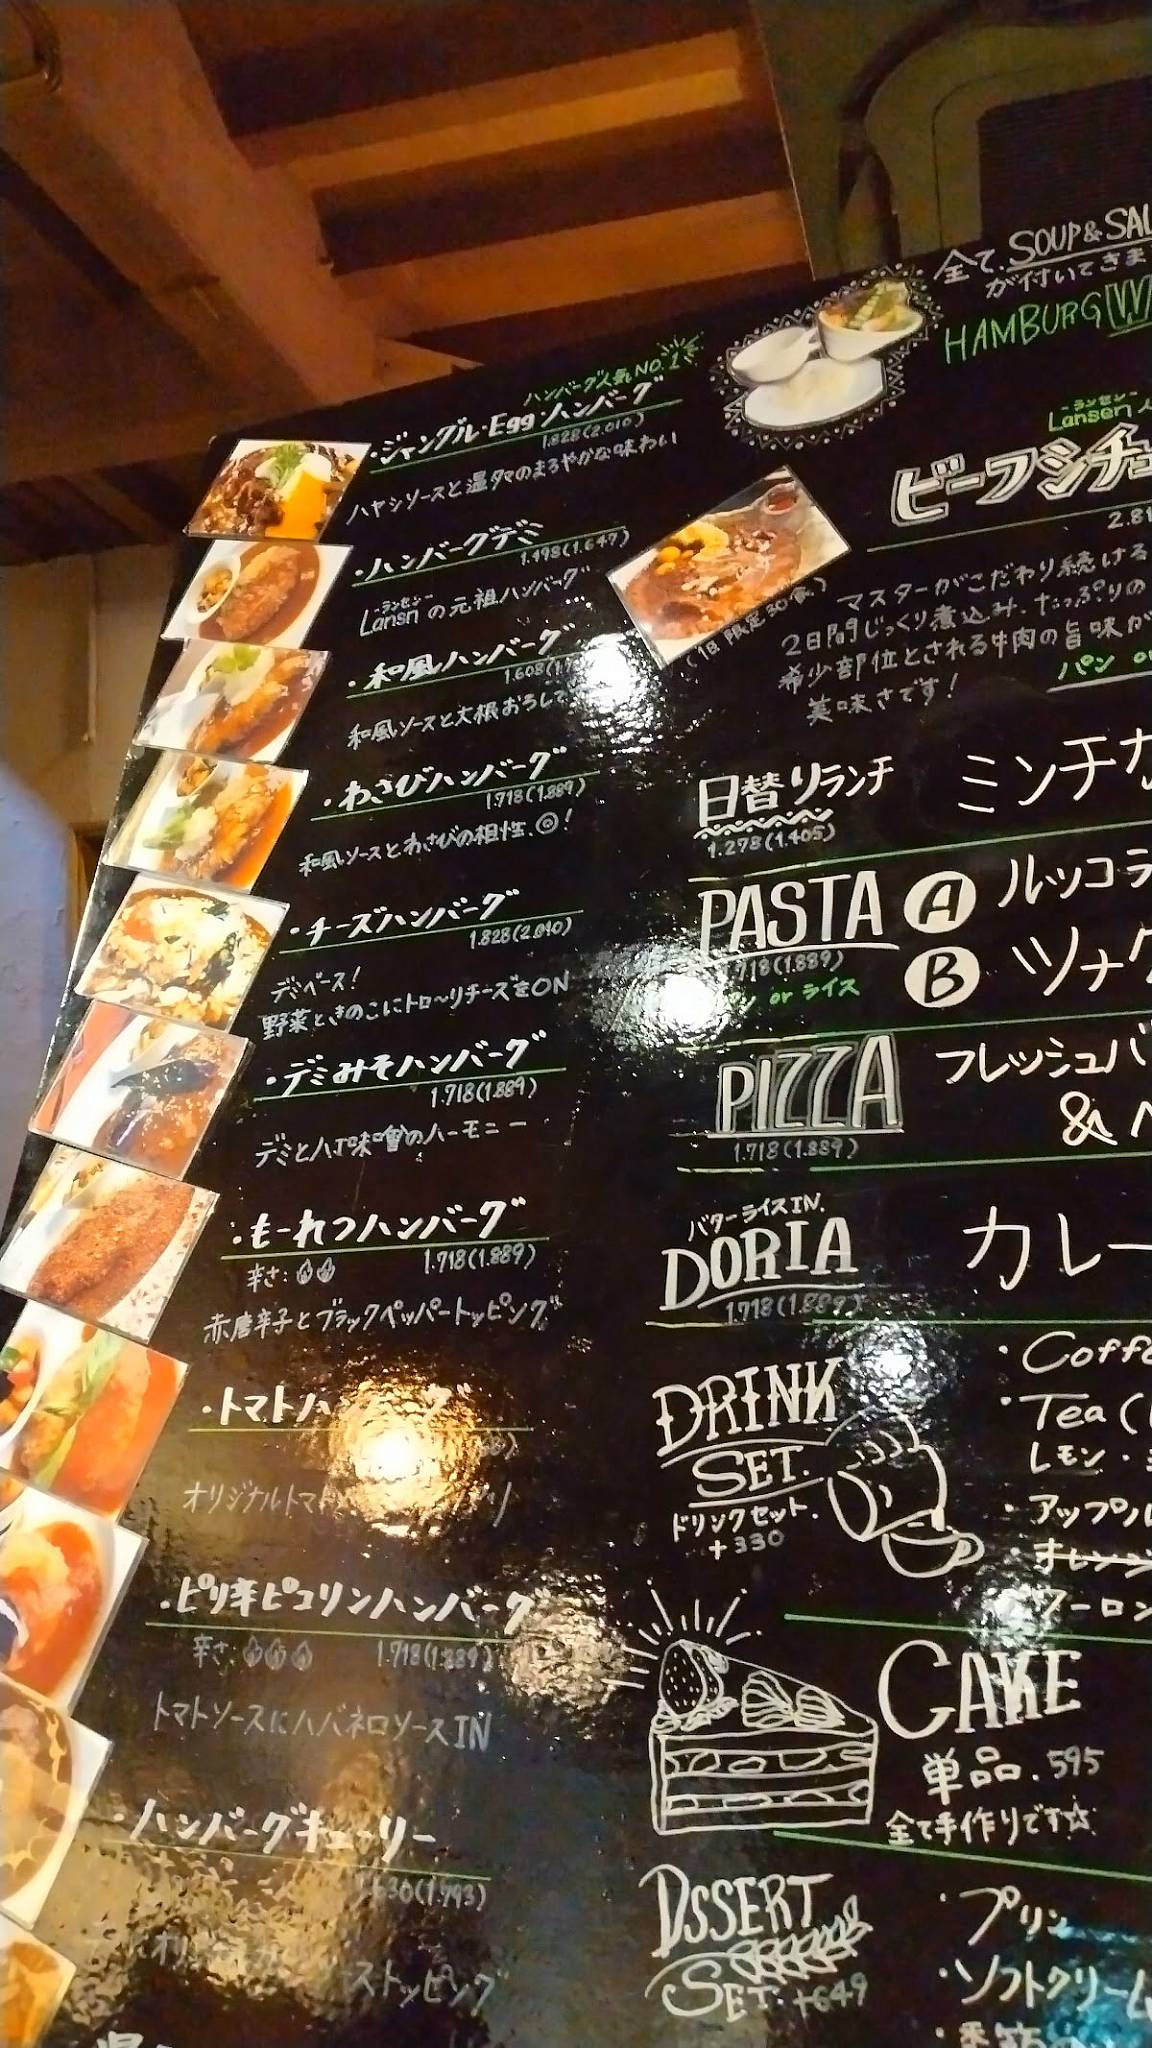 ハンバーグ人気NO.1
・ジャングル・Egg ハンバーグ
1.828(2.010)
ハヤシソースと温タマのまろやかな味わい
・ハンバーグデミ
1.498(1.647)
-ランセン-
Lansnの元祖ハンバーグ
・和風ハンバーグ
1.608
和風ソースと大根おろし
・わさびハンバーグ
1.718(1.889)
和風ソースとわさびの相性◎!
・チーズハンバーグ
1.828(2.010)
デミベース!
野菜ときのこにトロ〜リチーズをON
・デミみそハンバーグ
1.718(1.889)
デミと八丁味噌のハーモニー
・もーれつハンバーグ
辛さ: 1.718(1.889)
赤唐辛子とブラックペッパートッピング
・トマトハ グ
オリジナルトマト
・ピリ辛ピコリンハンバーグ
辛さ: 1.718(1.889)
トマトソースにハバネロソースIN
・ハンバーグキューリー
630(1.793)
ストッピング
全て、SOUP&
が付いてきま
HAMBURG
-ランセン-
Lansen
ビーフシチュ
2.81
(1日限定30食)
マスターがこだわり続ける
2日間じっくり煮込み、たっぷりの
希少部位とされる牛肉の旨味が
美味さです!
パン or
日替りランチ
1.278(1.405)
ミンチカ
PASTA
1.718(1.889)
パン or ライス
A ルッコラ
B ツナ
PIZZA
1.718(1.889)
フレッシュバ
&
バターライスIN.
DORIA
1.718(1.889)
カレー
DRINK
SET.
ドリンクセット.
+330
・Coffe
・Tea (
レモン・
・アップル
・オレンジ
・ウーロン
CAKE
単品. 595
全て手作りです☆
DSSERT
SET. +649
・プリン
・ソフトクリーム
・季節の